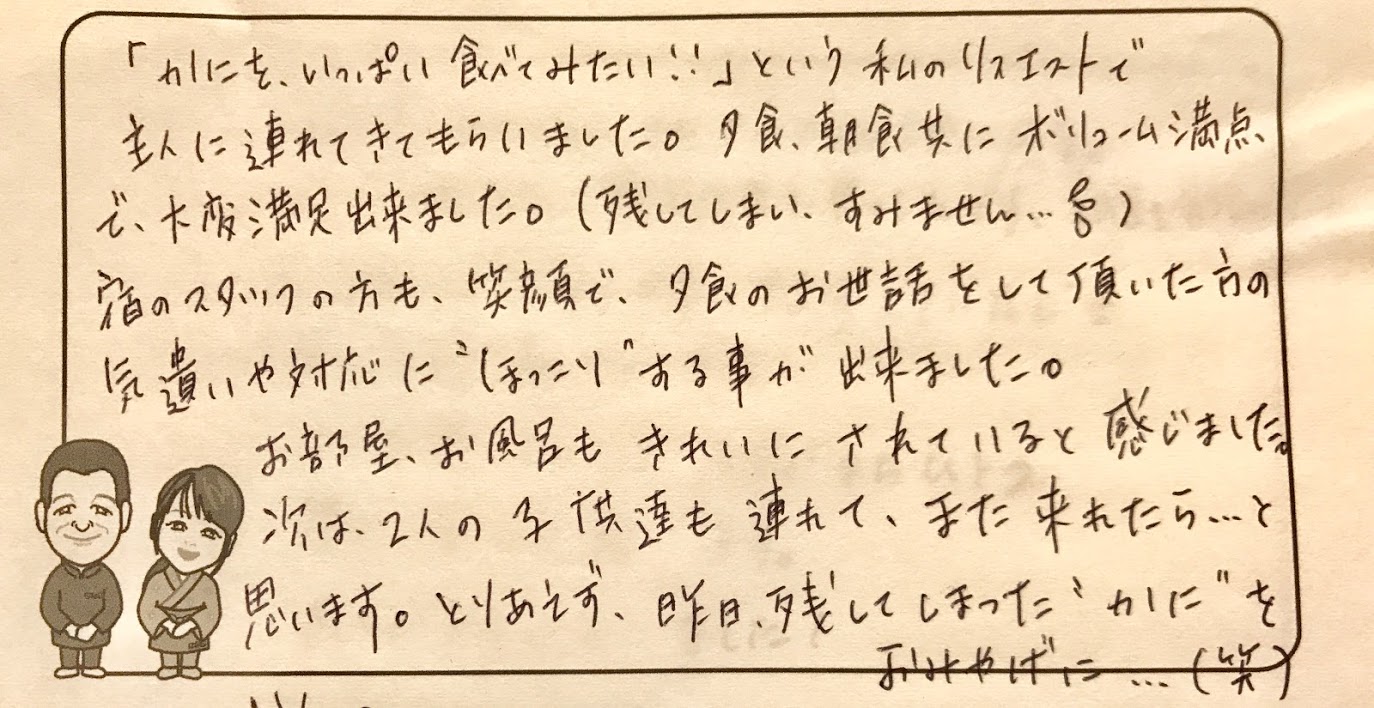 「かにを、いっぱい食べてみたい!!」という私のリクエストで
主人に連れてきてもらいました。夕食、朝食共にボリューム満点
で、大変満足出来ました。(残してしまい、すみません…)
宿のスタッフの方も、笑顔で、夕食のお世話をして頂いた方の
気遣いや対応に〝ほっこり〟する事が出来ました。
お部屋、お風呂もきれいにされていると感じました。
次は、2人の子供達も連れて、また来れたら…と
思います。とりあえず、昨日、残してしまった〝かに〟を
おみやげに…(笑)